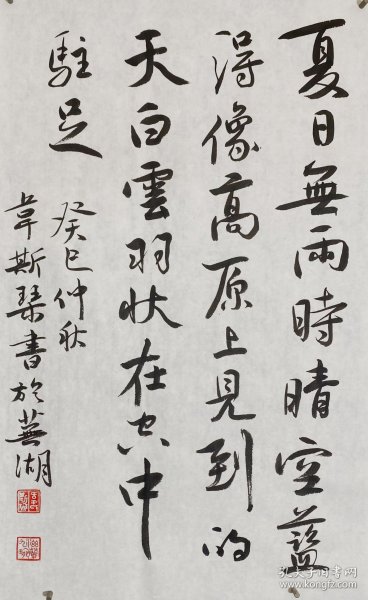 夏日無雨時晴空藍
得像高原上見到的
天白雲羽狀在空中
駐足
癸巳仲秋
韋斯琴書於蕪湖
孔夫子旧书网
kongfz.com